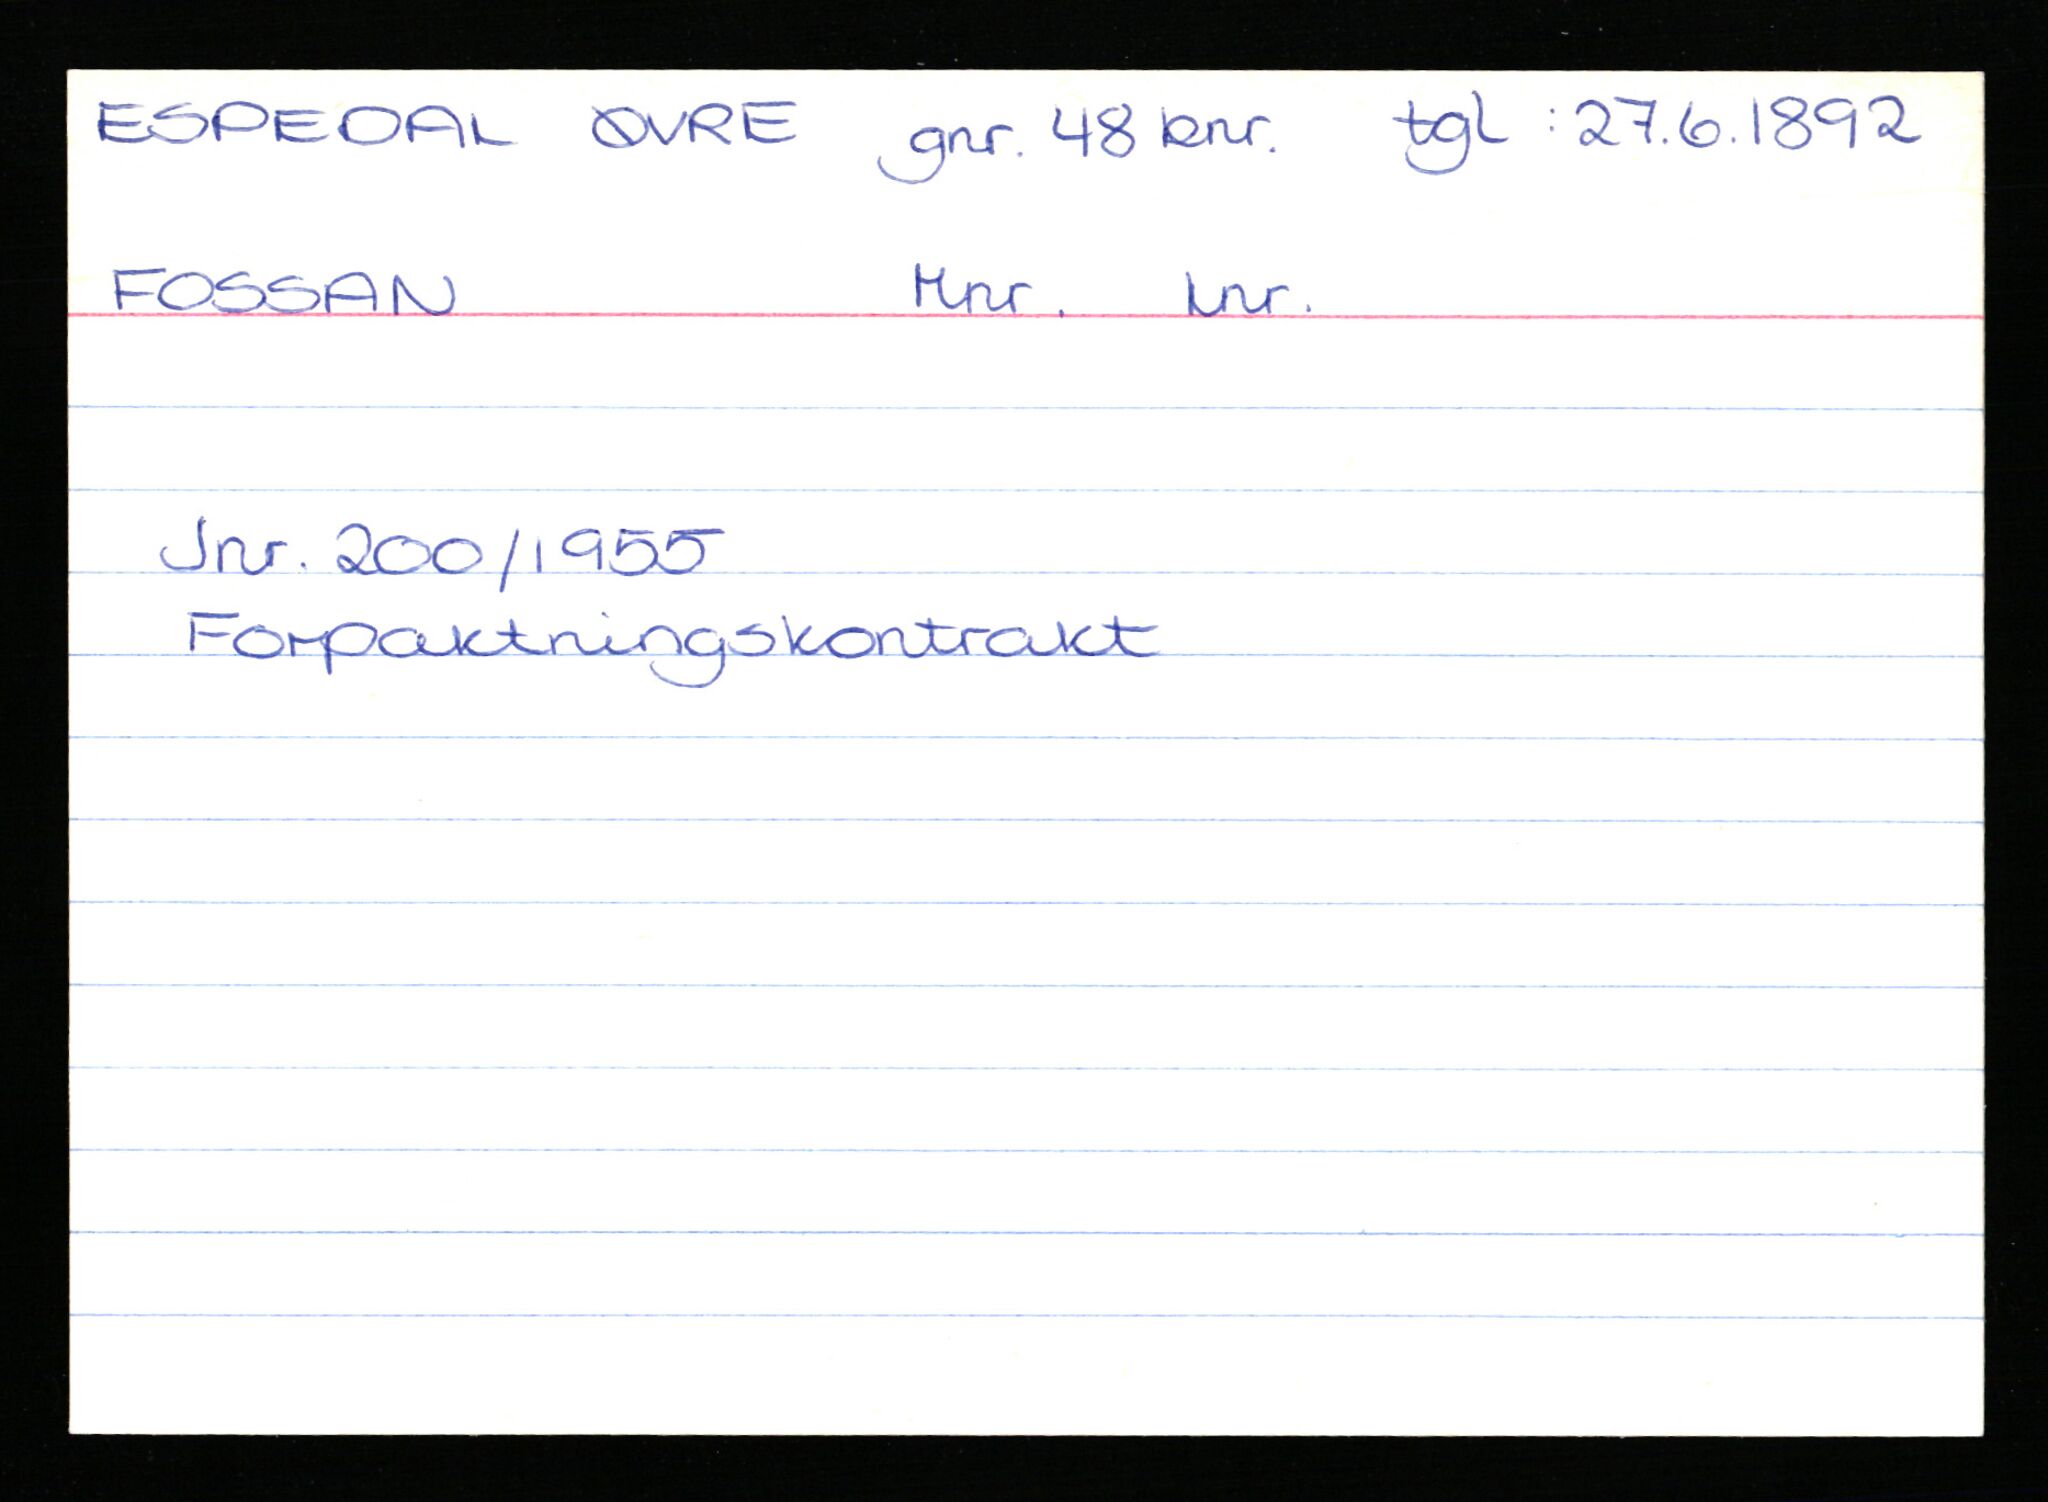 ESPEDAL ØVRE gnr. 48 bnr. tgl : 27.6.1892
FOSSAN Mnr. lnr.
Jnr. 200/1955
Forpaktningskontrakt